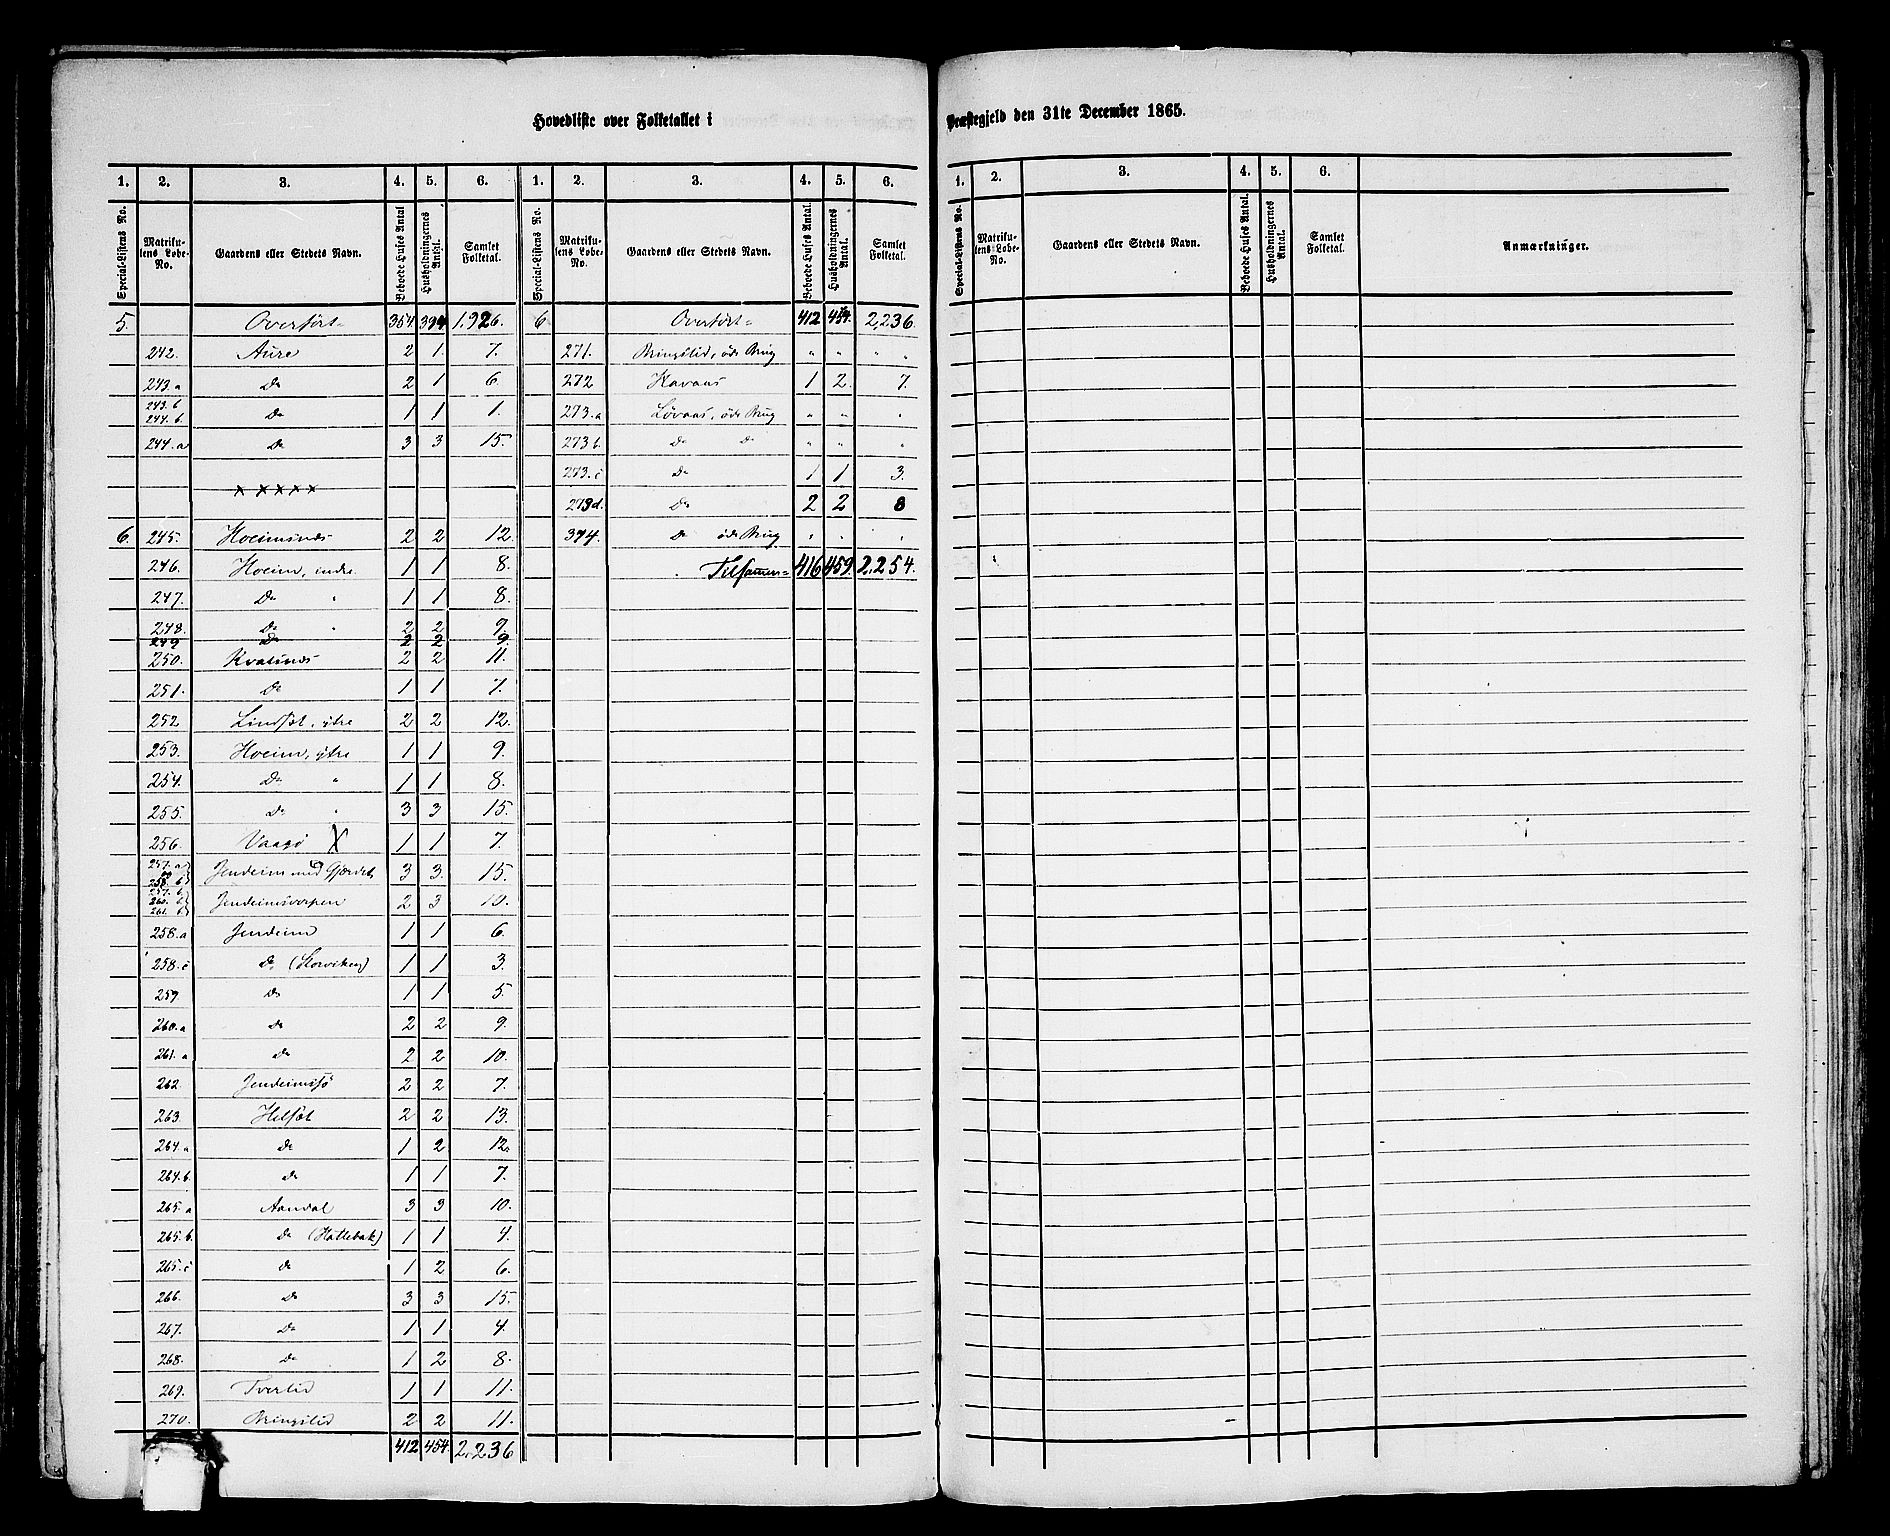 Hovedliste over Folketallet i Præstegjeld den 31te December 1865.
1. 2. 3. 4. 5. 6. 1. 2. 3. 4. 5. 6.
Special-Listens No. Matrikulens Løbe-No. Gaardens eller Stedets Navn. Beboede Huses Antal Husholdningernes Antal. Samlet Folketal. Special-Listens No. Matrikulens Løbe-No. Gaardens eller Stedets Navn. Beboede Huses Antal. Husholdningernes Antal. Samlet Folketal.
5. Overført= 354 394 1,926.
242. Aure 2 1. 7.
243.a Do 2 1 6.
243.b 244.b. Do 1 1 1.
244.a Do 3 3 15.
x x x x x
6. 245. Hoeimsnæs 2 2 12.
246. Hoeim, indre 1 1 8.
247. Do " 1 1 8.
248. Do " 2 2 7.
249 Do 2 2 9.
250. Kvalsnæs 2 2 11.
251. Do 1 1 7.
252 Lindsæt, ytre 2 2 12.
253. Hoeim, ytre 1 1 9.
254. Do " 1 1 8.
255. Do " 3 3 15.
256. Vaagø X 1 1 7.
257.a 258.b Jendeim med Gjærdet 3 3. 15.
257.b 260.b 261.b Jendeimsvorpen 2 3 10.
258.a Jendeim 1 1 6.
258.c Do (Storviken) 1 1 3.
259. Do 1 1 5.
260.a Do 2 2 9.
261.a Do 2 2 10.
262. Jendeimsø 2 2 7.
263. Helsæt 2 2 13.
264.a Do 1 2 12.
264.b. Do 1 1 7.
265.a Aandal 3 3 10.
265.b. Do (Hattebak) 1 1 4.
265.c Do 1 2 6.
266. Do 3 3 15.
267. Do 1 1 4.
268. Do 1 2 8.
269. Tverlid 1 1 11.
270. Bringslid 2 2 11.
412 454. 2,236
6. Overført= 412 454. 2,236.
271. Bringslid, øde Brug " " " "
272 Kavaas 1 2. 7.
273.a Løvaas, øde Brug " " "
273 b. Do Do " " "
273.c Do 1 1 3.
273d. Do 2 2 8
374. Do øde Brug " " "
Tilsamen= 416 459. 2,254.
1. 2. 3. 4. 5. 6.
Special-Listens No. Matrikulens Løbe-No. Gaardens eller Stedets Navn. Beboede Huses Antal. Husholdningernes Antal. Samlet Folketal. Anmærkninger.